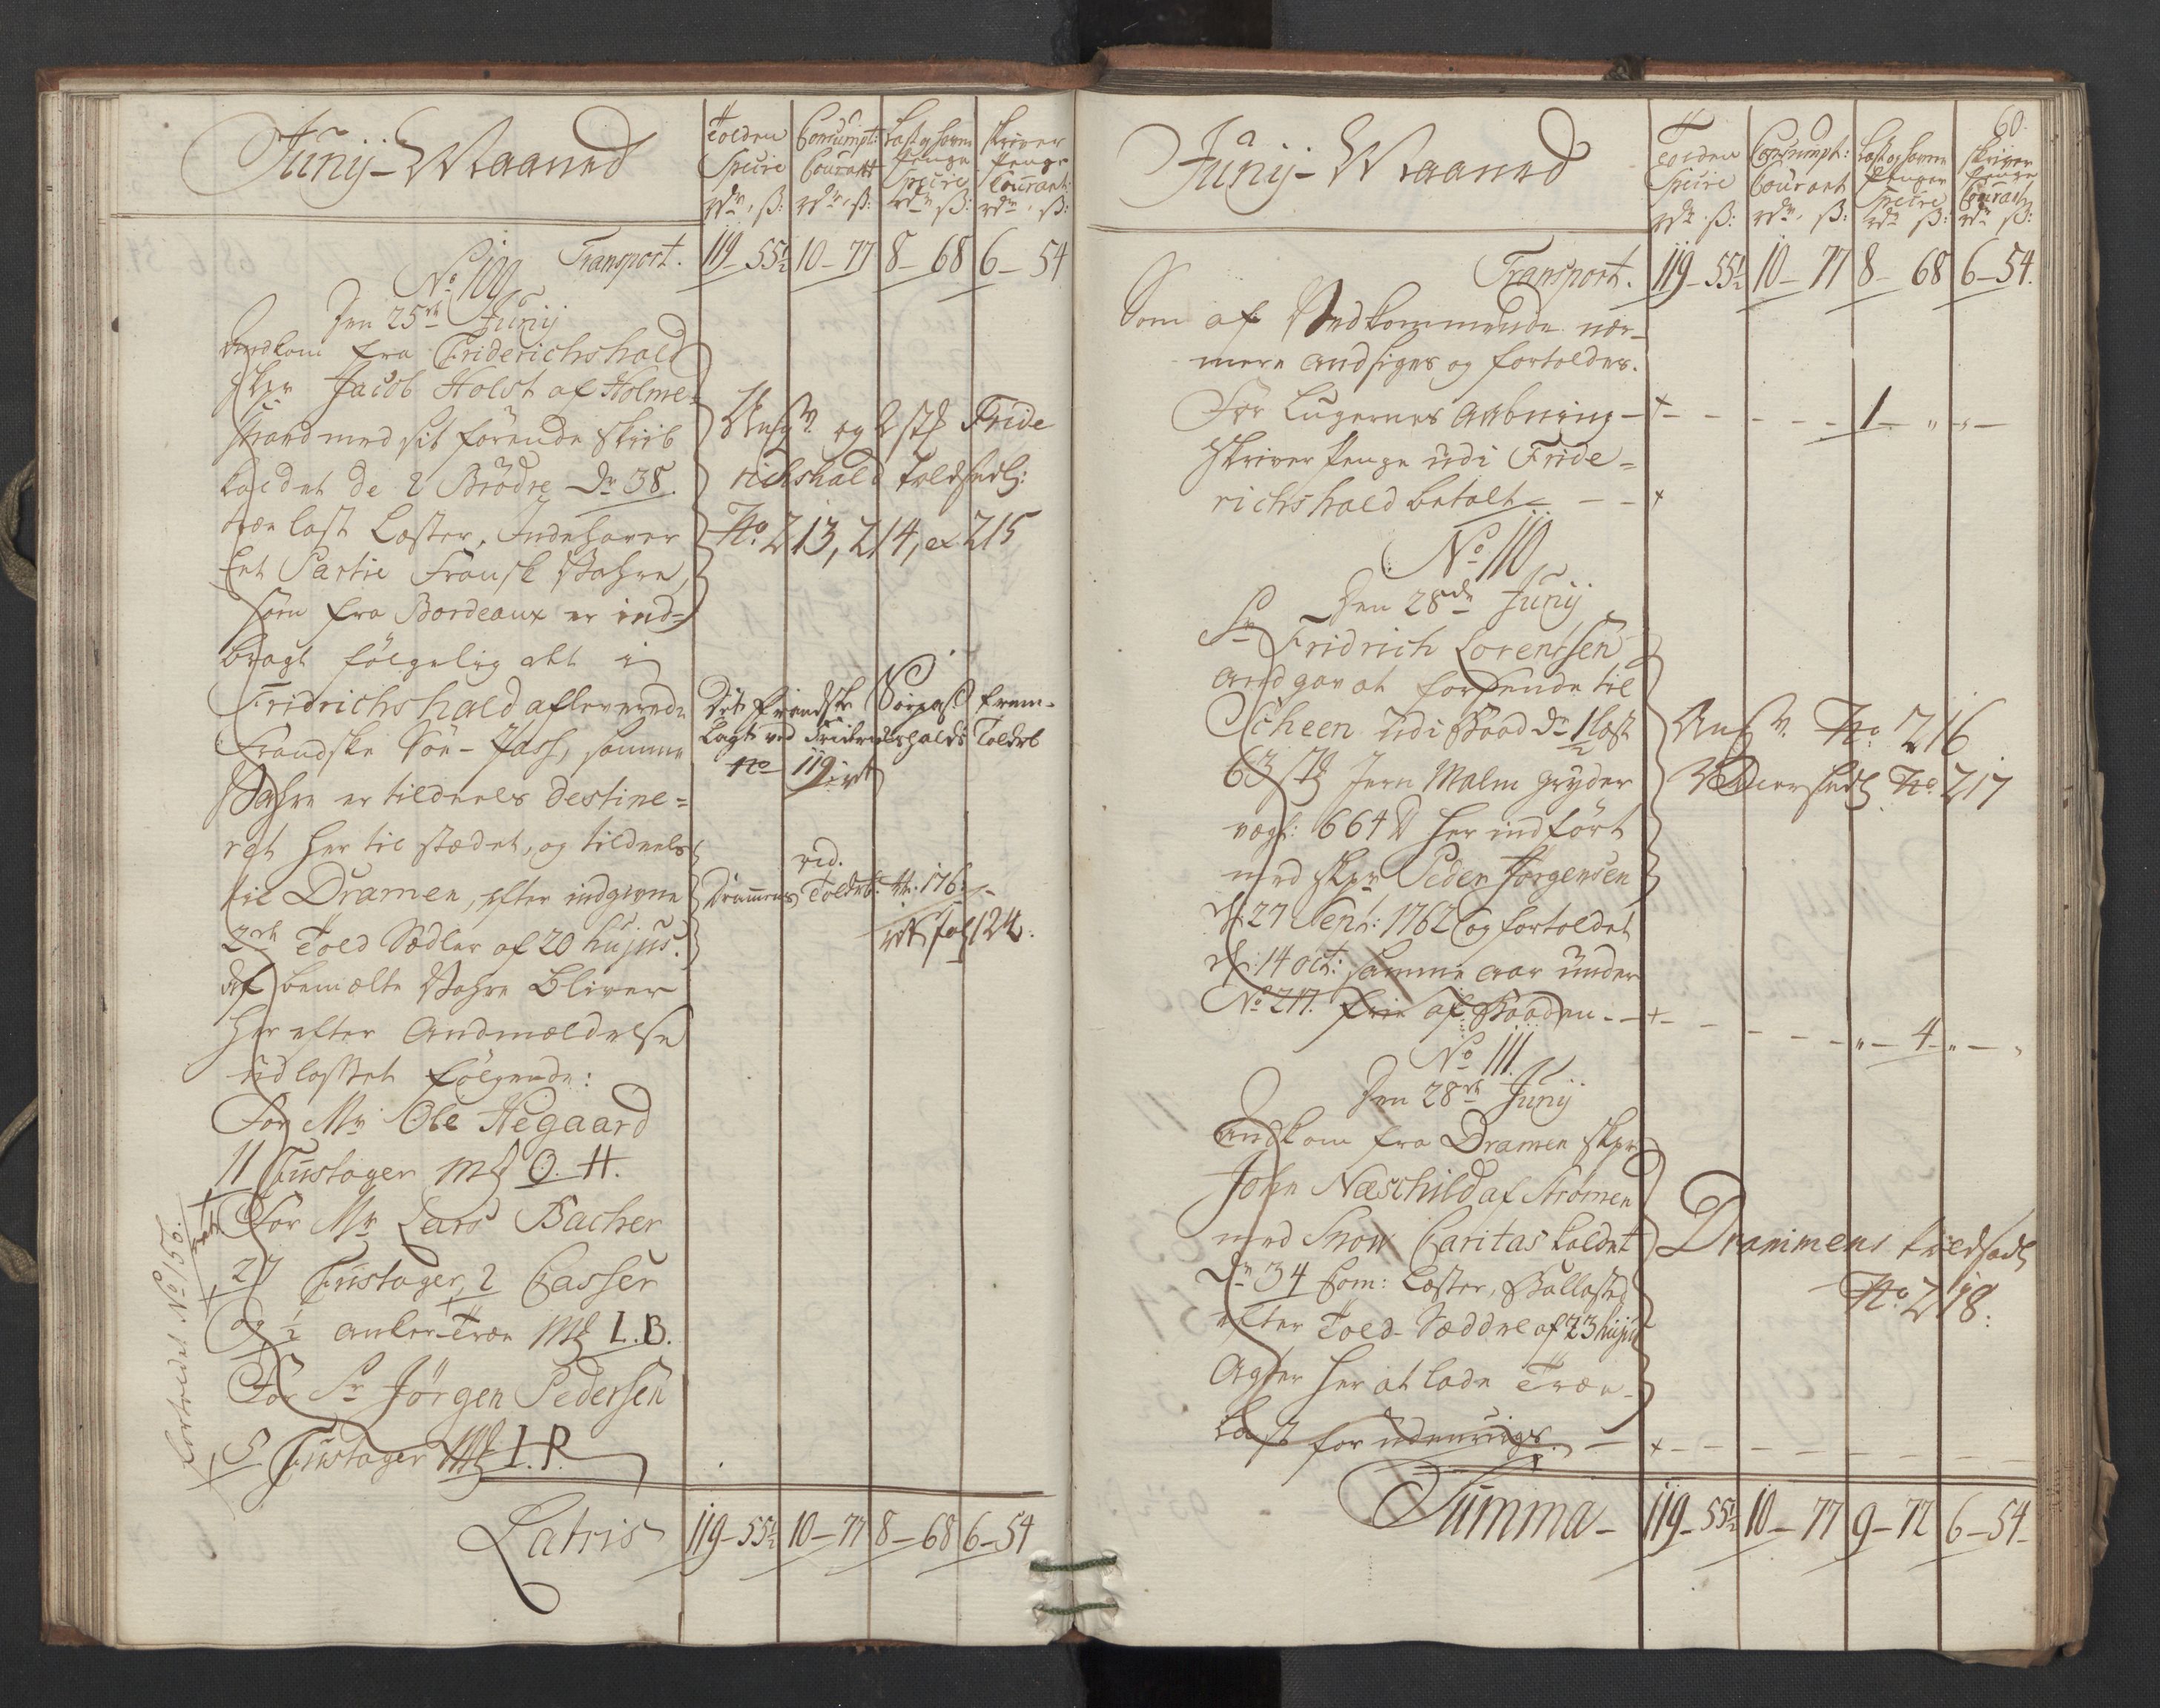 Junij-Maaned
Tolden Specie rdr. ß:
Consumpt: Courant rdr. ß:
Last og Havne Penge Specie rdr. ß:
Skriver Penge Courant rdr. ß:
Transport. 119-55½ 10-77 8-68 6-54
No 109
Den 25de Junij
Indkom fra Friderichshald
Skpr Jacob Holst af Holme-
strand med sit förende Skiib
kaldet de 2 Brödre, Dr 38
træ last Læster, Indehaver
Eet Partie Fransk Wahre,
som fra Bordeaux er ind-
bragt følgelig det i
Fridrichshald afleverede
Frandske Söe-Pass, samme
Wahre er tildeels destine-
ret her til stædet, og tildeels
til Dramen, efter indgivne
2de Told Sædler af 20 hujus.
Af bemælte Wahre bliver
her efter Andmældelse
udlosset følgende:
For Mr Ole Hegaard
11 Fustager M O. H.
For Mr Lars Bacher
27 Fustager, 2 Casser
og ½ anker Træe M L. B.
For Sr Jörgen Pedersen
5 Fustager M I. P.
fortoldet No 150.
og 2 st Fride
richshald Toldsedl:
No. 213, 214, et 215
Det Frandske Söepass frem-
lagt ved Friderichshalds Toldb
No 119
vid.
Dramens Toldb. No. 176.
fol 124.
Latris 119-55½ 10-77 8-68 6-54
60.
Junij-Maaned
Tolden Specie rdr. ß:
Consumpt: Courant rdr. ß:
Last og Havne Penge Specie rdr. ß:
Skriver Penge Courant rdr. ß:
Transport. 119-55½ 10-77 8-68 6-54.
Som af Vedkommende nær-
mere andsiges og fortoldes.
For Lugernes Aabning - + - - - - - 1 - " - " -
Skriver Penge udi Fride-
richshald betalt - - - +
No 110
Den 28de Junij
Sr Fridrich Lorentsen
andgav at forsende til
Scheen udi Baad Dr 1½ last
63 st Jern Malm Gryder
vegt: 664 ℔ her indfört
med Skpr Peder Jörgensen
d. 27 Sept: 1762 og fortoldet
d: 14 oct: samme aar under
No 217. frie af Baaden - - + - - - - - " - 4 - " - "
No. 216
No. 217
No 111.
Den 28de Junij
Indkom fra Dramen Skpr
John Næschild af Strömen
med Snow Caritas kaldet
Dr 34 Com: Læster, Ballasted
efter Told-Sæddel af 23 hujus
Agter her at lade Træe-
last for udenrigs. - + - - - - - - - -
Drammens toldsedl
No. 218.
Summa - 119-55½ 10-77 9-72 6-54